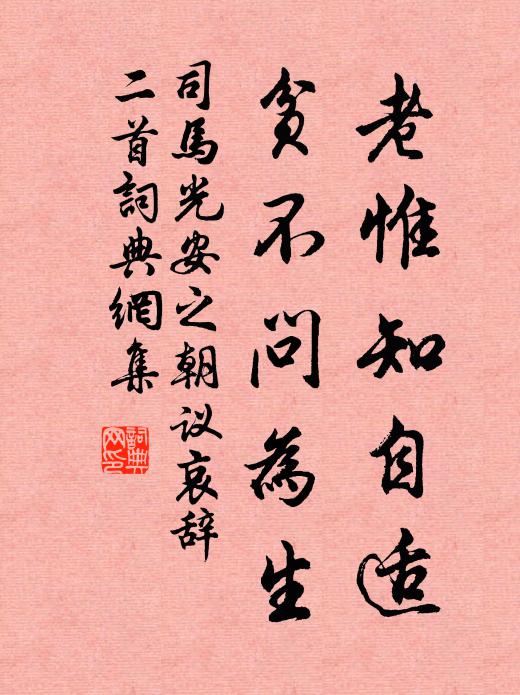 老惟知自适
贫不问為生
司馬光安之朝议哀辞
二首詞典網集
詞典
网印